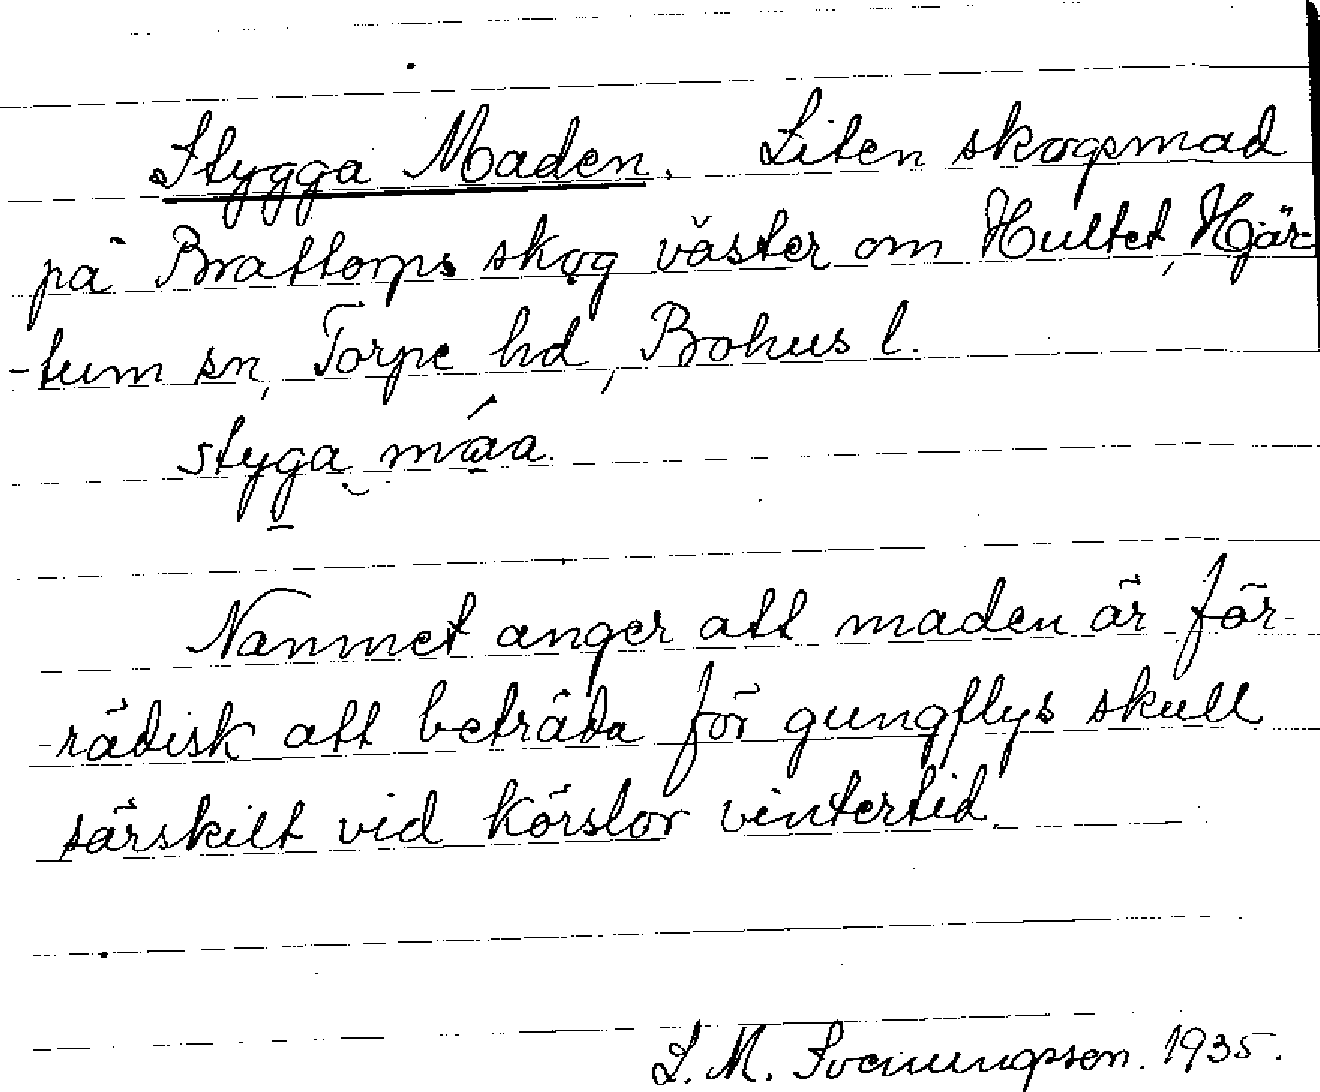 Stygga Maden. Liten skogsmad
på Brattorps skog väster om Hultet, Hjär-
-tum sn, Torpe hd, Bohus l.
styga máa.
Namnet anger att maden är för-
-rädisk att beträda för gungflys skull
särskilt vid körslor vintertid.
S. M. Svenungsson. 1935.